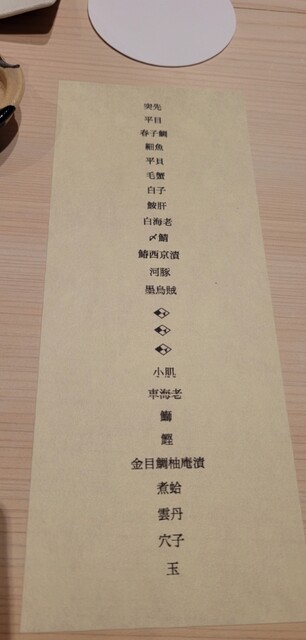 突先
平目
春子鯛
鱈魚
平貝
毛蟹
白子
鮟肝
白海老
〆鯖
鰆西京漬
河豚
墨烏賊
小肌
車海老
鰤
鰹
金目鯛柚庵漬
煮蛤
雲丹
穴子
玉